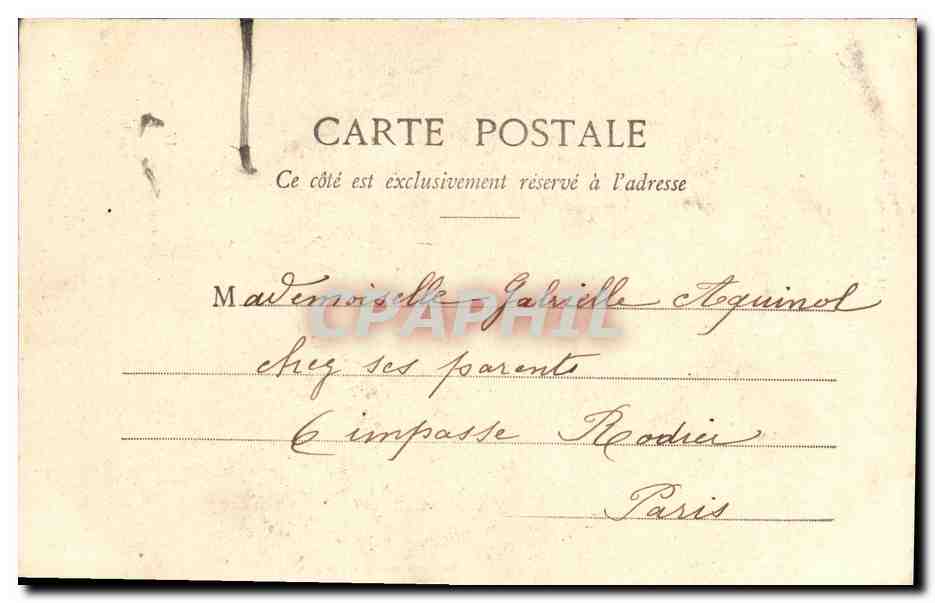 CARTE POSTALE
Ce côté est exclusivement réservé à l'adresse
Mademoiselle Gabrielle Aquinol
chez ses parents
6 impasse Rodier
Paris
CPAPHIL